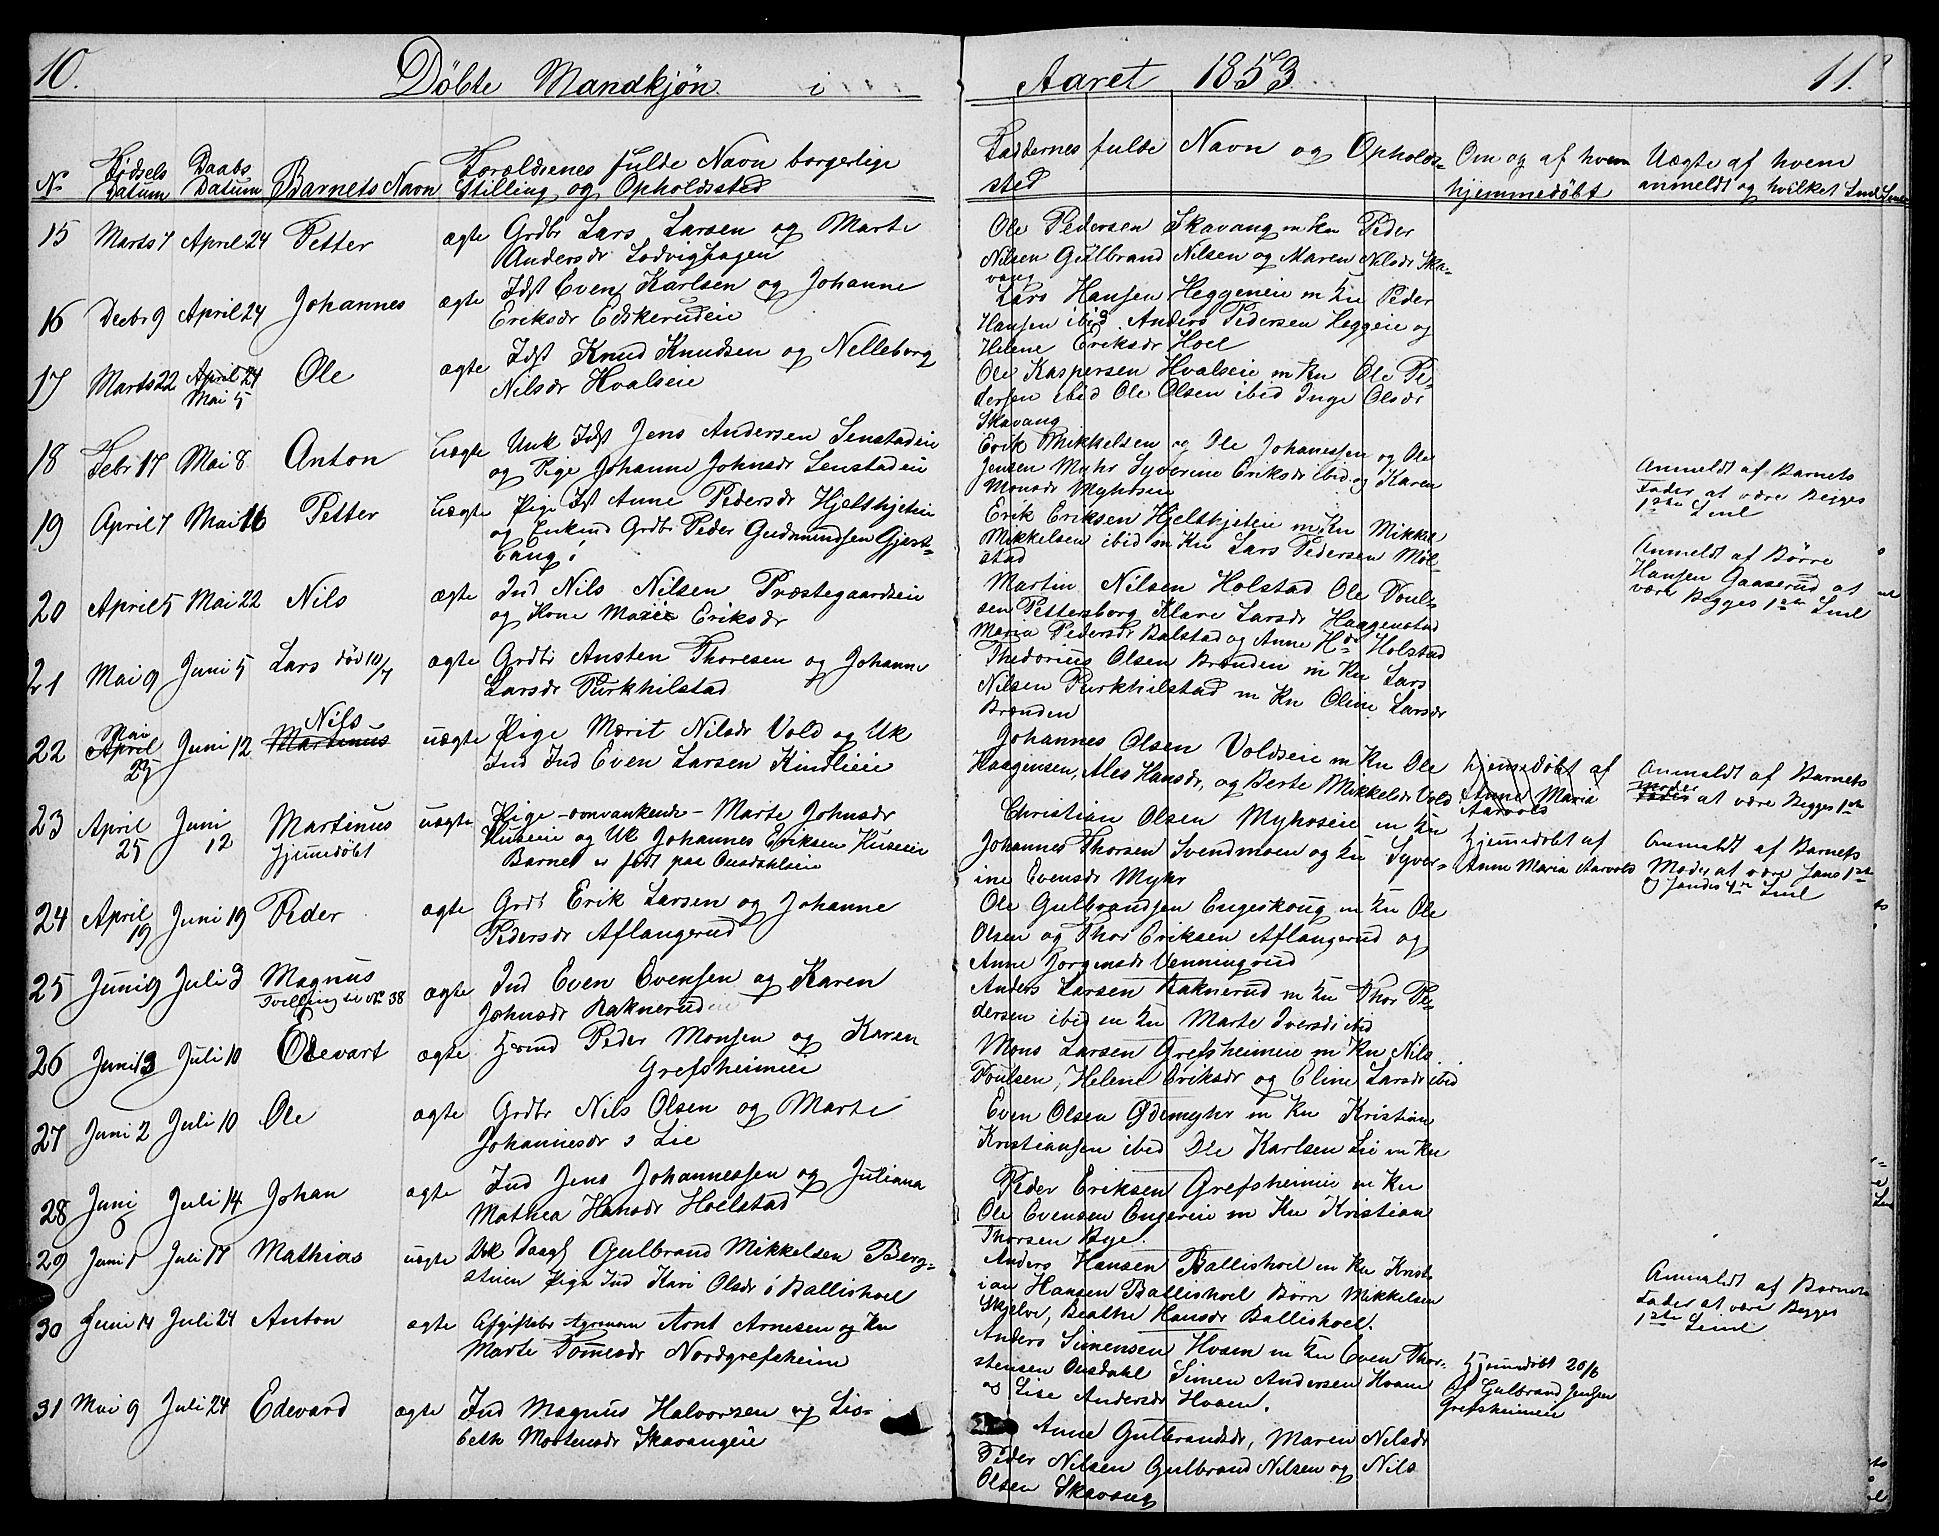 10. Döbte Mandkjön i Aaret 1853. 11.
No Födsels Datum Daabs Datum Barnets Navn Forældrenes fulde Navn borgerlige Stilling og Opholdssted
Faddernes fulde Navn og Opholdssted
Om og af hvem hjemmedöbt
Uægte af hvem anmeldt og hvilket
15 Marts 7 April 24 Petter ægte Grdbr Lars Larsen og Marte
Andersdr Lodvighagen
Ole Pedersen Skavang m Kn Peder
Nilsen Gulbrand Nilsen og Maren Nilsdr Ska-
vang
16 Decbr 9 April 24 Johannes ægte Idst Even Karlsen og Johanne
Eriksdr Edskerudeie
Lars Hansen Heggeneie m Kn Peder
Hansen ibid Anders Pedersen Heggeie og
Helene Eriksdr Hoel
17 Marts 22 April 24 Mai 5 Ole ægte Idst Knud Knudsen og Nelleborg
Nilsdr Hvalseie
Ole Kaspersen Hvalseie m Kn Ole Pe-
dersen ibid Ole Olsen ibid Inge Olsdr
Skavang
18 Febr 17 Mai 8 Anton uægte Unk Idst Jens Andersen Senstadeie
og Pige Johanne Johnsdr Senstadeie
Erik Mikkelsen og Ole Johanessen og Ole
Jensen Myhr Syverine Eriksdr ibid og Karen
Monsdr Myhrseie
Anmeldt af Barnets
Fader at være Begges
1ste
19 April 7 Mai 16 Petter uægte Pige Idst Anne Pedersdr Hjelskjeteie
og Enkemd Grdbr Peder Gudmundsen Gjest-
vang
Erik Eriksen Hjelskjeteie m Kn Mikkel
Mikkelsen ibid m Kn Lars Pedersen Möl-
stad
Anmeldt af Börre
Hansen Gaaserud at
være Begges 1ste
20 April 5 Mai 22 Nils ægte Ind Nils Nilsen Præstegaardseie
og Kone Marie Eriksdr
Martin Nilsen Holstad Ole Pouls-
sen Pettersborg Klare Larsdr Haagenstad
Maria Pedersdr Balstad og Anne Hdr Holstad
21 Mai 9 Juni 5 Lars död 10/7 ægte Grdbr Ansten Thoresen og Johanne
Larsdr Purkhilstad
Thedorius Olsen Brænden m Kn Lars
Nilsen Purkhilstad m Kn Oline Larsdr
Brænden
22 April Mai 25 Juni 12 Martinus Nils uægte Pige Marit Nilsdr Vold og Uk
Ind Ind Even Larsen Kindlieie
Johannes Olsen Voldseie m Kn Ole
Haagensen, Ales Hansdr, og Berte Mikkelsdr Vold
Hjemedöbt af
Anne Maria
Aarvols
Anmeldt af Barnets
Fader Moder at være Begges 1ste
23 April 25 Juni 12 Martinus Hjemedöbt uægte Pige - omvankende - Marte Johnsdr
Huseeie og Uk Johannes Eriksen Huseeie
Barnet er födt paa Ousdahleie
Christian Olsen Myhrseie m Kn
Johannes Thorsen Svendmoen og Kn Syver-
ine Evensdr Myhr
Hjemedöbt af
Anne Maria Aarvols
Anmeldt af Barnets
Moder at være
24 April 19 Juni 19 Peder ægte Grdb Erik Larsen og Johanne
Pedersdr Aflangerud
Ole Gulbrandsen Engeskoug m Kn Ole
Olsen og Thor Eriksen Aflangerud og
Anne Jorgensdr Venningrud
25 Juni 9 Juli 3 Magnus Tvilling se No 38 ægte Ind Even Evensen og Karen
Johnsdr Raknerud
Anders Larsen Raknerud m Kn Thor Pe-
dersen ibid m Kn Marte Iversdr ibid
26 Juni 13 Juli 10 Edevart ægte Peder Monsen og Karen
Grefsheimeie
Mons Larsen Grefsheimeie m Kn Nils
Poulsen, Helene Eriksdr og Eline Larsdr ibid
27 Juni 2 Juli 10 Ole ægte Grdbr Nils Olsen og Marte
Johannesdr Lie
Even Olsen Ødemyhr m Kn Kristian
Kristiansen ibid Ole Karlsen Lie m Kn
28 Juni 6 Juli 14 Johan ægte Ind Jens Johannessen og Juliana
Mathea Hansdr Hoelstad
Peder Eriksen Grefsheimeie m Kn
Ole Evensen Engereie m Kn Kristian
Thorsen Bye.
29 Juni 1 Juli 17 Mathias uægte Gulbrand Mikkelsen Berg-
stuen Pige Ind Kari Olsdr i Ballishoel
Anders Hansen Ballishoel m Kn Krist-
ian Hansen Ballishoel Börre Mikkelsen
Skjelve, Beathe Hansdr Ballishoel.
Anmeldt af Barnets
Fader at være Begges
1ste
30 Juni 14 Juli 24 Anton ægte Afgiftsbr Arnt Arnesen og Kn
Marte Tomesdr Nordgrefsheim
Anders Simensen Hvam m Kn Even Thor-
stensen Ousdahl Simen Andersen Hvam
og Lise Andersdr Hvam.
Hjemedöbt 20/6
af Gulbrand Jensen
Grefsheimeie
31 Mai 9 Juli 24 Edevard ægte Ind Magnus Halvorsen og Lis-
beth Mortensdr Skavangeie
Anne Gulbrandsdr, Maren Nilsdr
Peder Nilsen Gulbrand Nilsen og Nils
Olsen Skavang